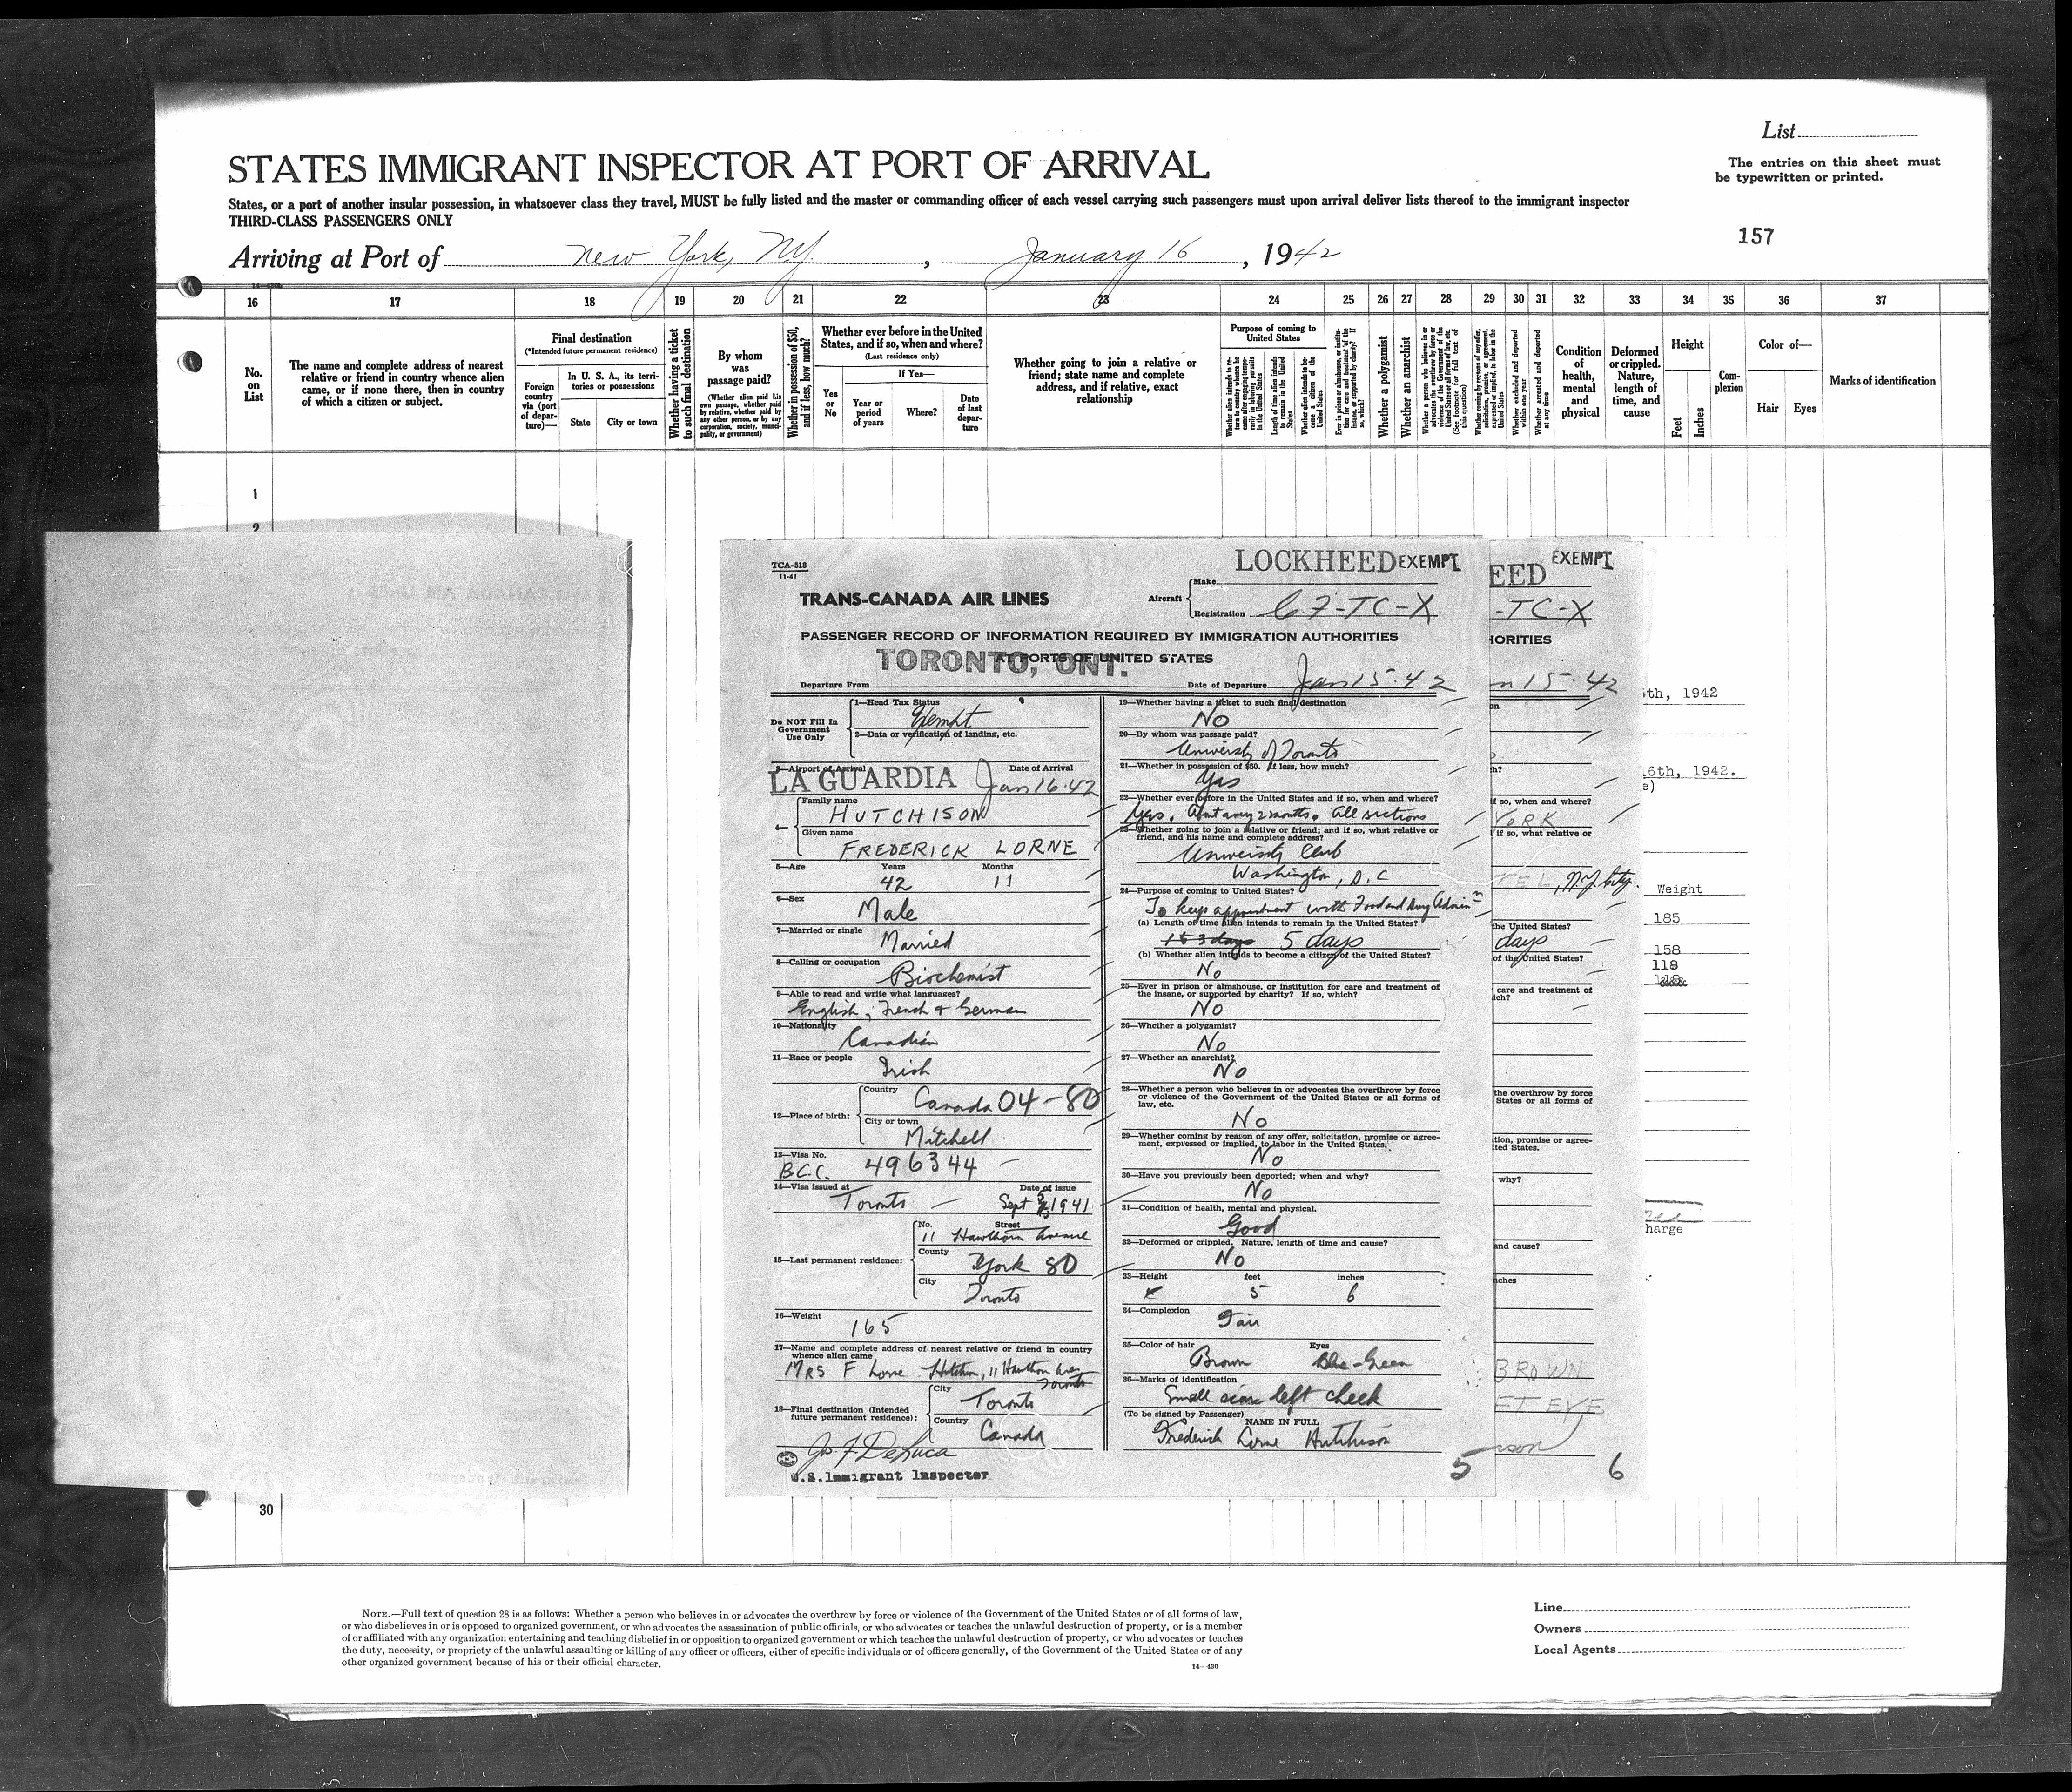 List
STATES IMMIGRANT INSPECTOR AT PORT OF ARRIVAL
The entries on this sheet must
be typewritten or printed.
States, or a port of another insular possession, in whatsoever class they travel, MUST be fully listed and the master or commanding officer of each vessel carrying such passengers must upon arrival deliver lists thereof to the immigrant inspector
THIRD-CLASS PASSENGERS ONLY
157
Arriving at Port of New York, NY. , January 16 , 1942
16 17 18 19 20 21 22 23 24 25 26 27 28 29 30 31 32 33 34 35 36 37
No. on List
The name and complete address of nearest relative or friend in country whence alien came, or if none there, then in country of which a citizen or subject.
Final destination
(*Intended future permanent residence)
Foreign country via (port of departure)—
In U. S. A., its territories or possessions
State
City or town
Whether having a ticket to such final destination
By whom was passage paid?
(Whether alien paid his own passage, whether paid by relative, whether paid by any other person, or by any corporation, society, municipality, or government)
Whether in possession of $50, and if less, how much?
Whether ever before in the United States, and if so, when and where?
(Last residence only)
Yes or No
If Yes—
Year or period of years
Where?
Date of last departure
Whether going to join a relative or friend; state name and complete address, and if relative, exact relationship
Purpose of coming to United States
Length of time alien intends to remain in the United States
Whether alien intends to become a citizen of the United States
Whether a polygamist
Whether an anarchist
Condition of health, mental and physical
Deformed or crippled. Nature, length of time, and cause
Height
Feet
Inches
Complexion
Color of—
Hair
Eyes
Marks of identification
1
2
30
TCA-518
11-41
LOCKHEED EXEMPT
TRANS-CANADA AIR LINES
Aircraft
Make
Registration CF-TC-X
PASSENGER RECORD OF INFORMATION REQUIRED BY IMMIGRATION AUTHORITIES
AT PORTS OF UNITED STATES
TORONTO, ONT.
Departure From
Date of Departure Jan 15-42
Do NOT Fill In
Government
Use Only
1—Head Tax Status
Exempt
2—Data or verification of landing, etc.
3—Airport of Arrival
Date of Arrival
LA GUARDIA Jan 16-42
4—
Family name
HUTCHISON
Given name
FREDERICK LORNE
5—Age Years Months
42 11
6—Sex
Male
7—Married or single
Married
8—Calling or occupation
Biochemist
9—Able to read and write what languages?
English, French & German
10—Nationality
Canadian
11—Race or people
Irish
12—Place of birth:
Country
Canada 04-80
City or town
Mitchell
13—Visa No.
B.C.C. 496344
14—Visa issued at Date of issue
Toronto Sept 1941
15—Last permanent residence:
No. Street
11 Hawthorn Avenue
County
York 80
City
Toronto
16—Weight
165
17—Name and complete address of nearest relative or friend in country
whence alien came
MRS F Lorne Hutchison, 11 Hawthorn Ave
Toronto
18—Final destination (Intended
future permanent residence):
City
Toronto
Country
Canada
Jo. F. DeLuca
U.S. Immigrant Inspector
19—Whether having a ticket to such final destination
No
20—By whom was passage paid?
University of Toronto
21—Whether in possession of $50. If less, how much?
Yes
22—Whether ever before in the United States and if so, when and where?
Yes. About every 2 months. All sections
23—Whether going to join a relative or friend; and if so, what relative or
friend, and his name and complete address?
University Club
Washington, D.C
24—Purpose of coming to United States?
To keep appointment with Food and Drug Admin
(a) Length of time alien intends to remain in the United States?
5 days
(b) Whether alien intends to become a citizen of the United States?
No
25—Ever in prison or almshouse, or institution for care and treatment of
the insane, or supported by charity? If so, which?
No
26—Whether a polygamist?
No
27—Whether an anarchist?
No
28—Whether a person who believes in or advocates the overthrow by force
or violence of the Government of the United States or all forms of
law, etc.
No
29—Whether coming by reason of any offer, solicitation, promise or agree-
ment, expressed or implied, to labor in the United States.
No
30—Have you previously been deported; when and why?
No
31—Condition of health, mental and physical.
Good
32—Deformed or crippled. Nature, length of time and cause?
No
33—Height feet inches
5 6
34—Complexion
Fair
35—Color of hair Eyes
Brown Blue-Green
36—Marks of identification
Small scar left cheek
(To be signed by Passenger)
NAME IN FULL
Frederick Lorne Hutchison
5
EED EXEMPT
-TC-X
HORITIES
n 15-42
if so, when and where?
YORK
if so, what relative or
TEL, N.Y. City.
the United States?
days
of the United States?
care and treatment of
the overthrow by force
States or all forms of
tion, promise or agree-
ted States.
why?
and cause?
nches
BROWN
6
th, 1942
6th, 1942.
Weight
185
158
118
harge
NOTE.—Full text of question 28 is as follows: Whether a person who believes in or advocates the overthrow by force or violence of the Government of the United States or of all forms of law,
or who disbelieves in or is opposed to organized government, or who advocates the assassination of public officials, or who advocates or teaches the unlawful destruction of property, or is a member
of or affiliated with any organization entertaining and teaching disbelief in or opposition to organized government or which teaches the unlawful destruction of property, or who advocates or teaches
the duty, necessity, or propriety of the unlawful assaulting or killing of any officer or officers, either of specific individuals or of officers generally, of the Government of the United States or of any
other organized government because of his or their official character.
14—430
Line
Owners
Local Agents